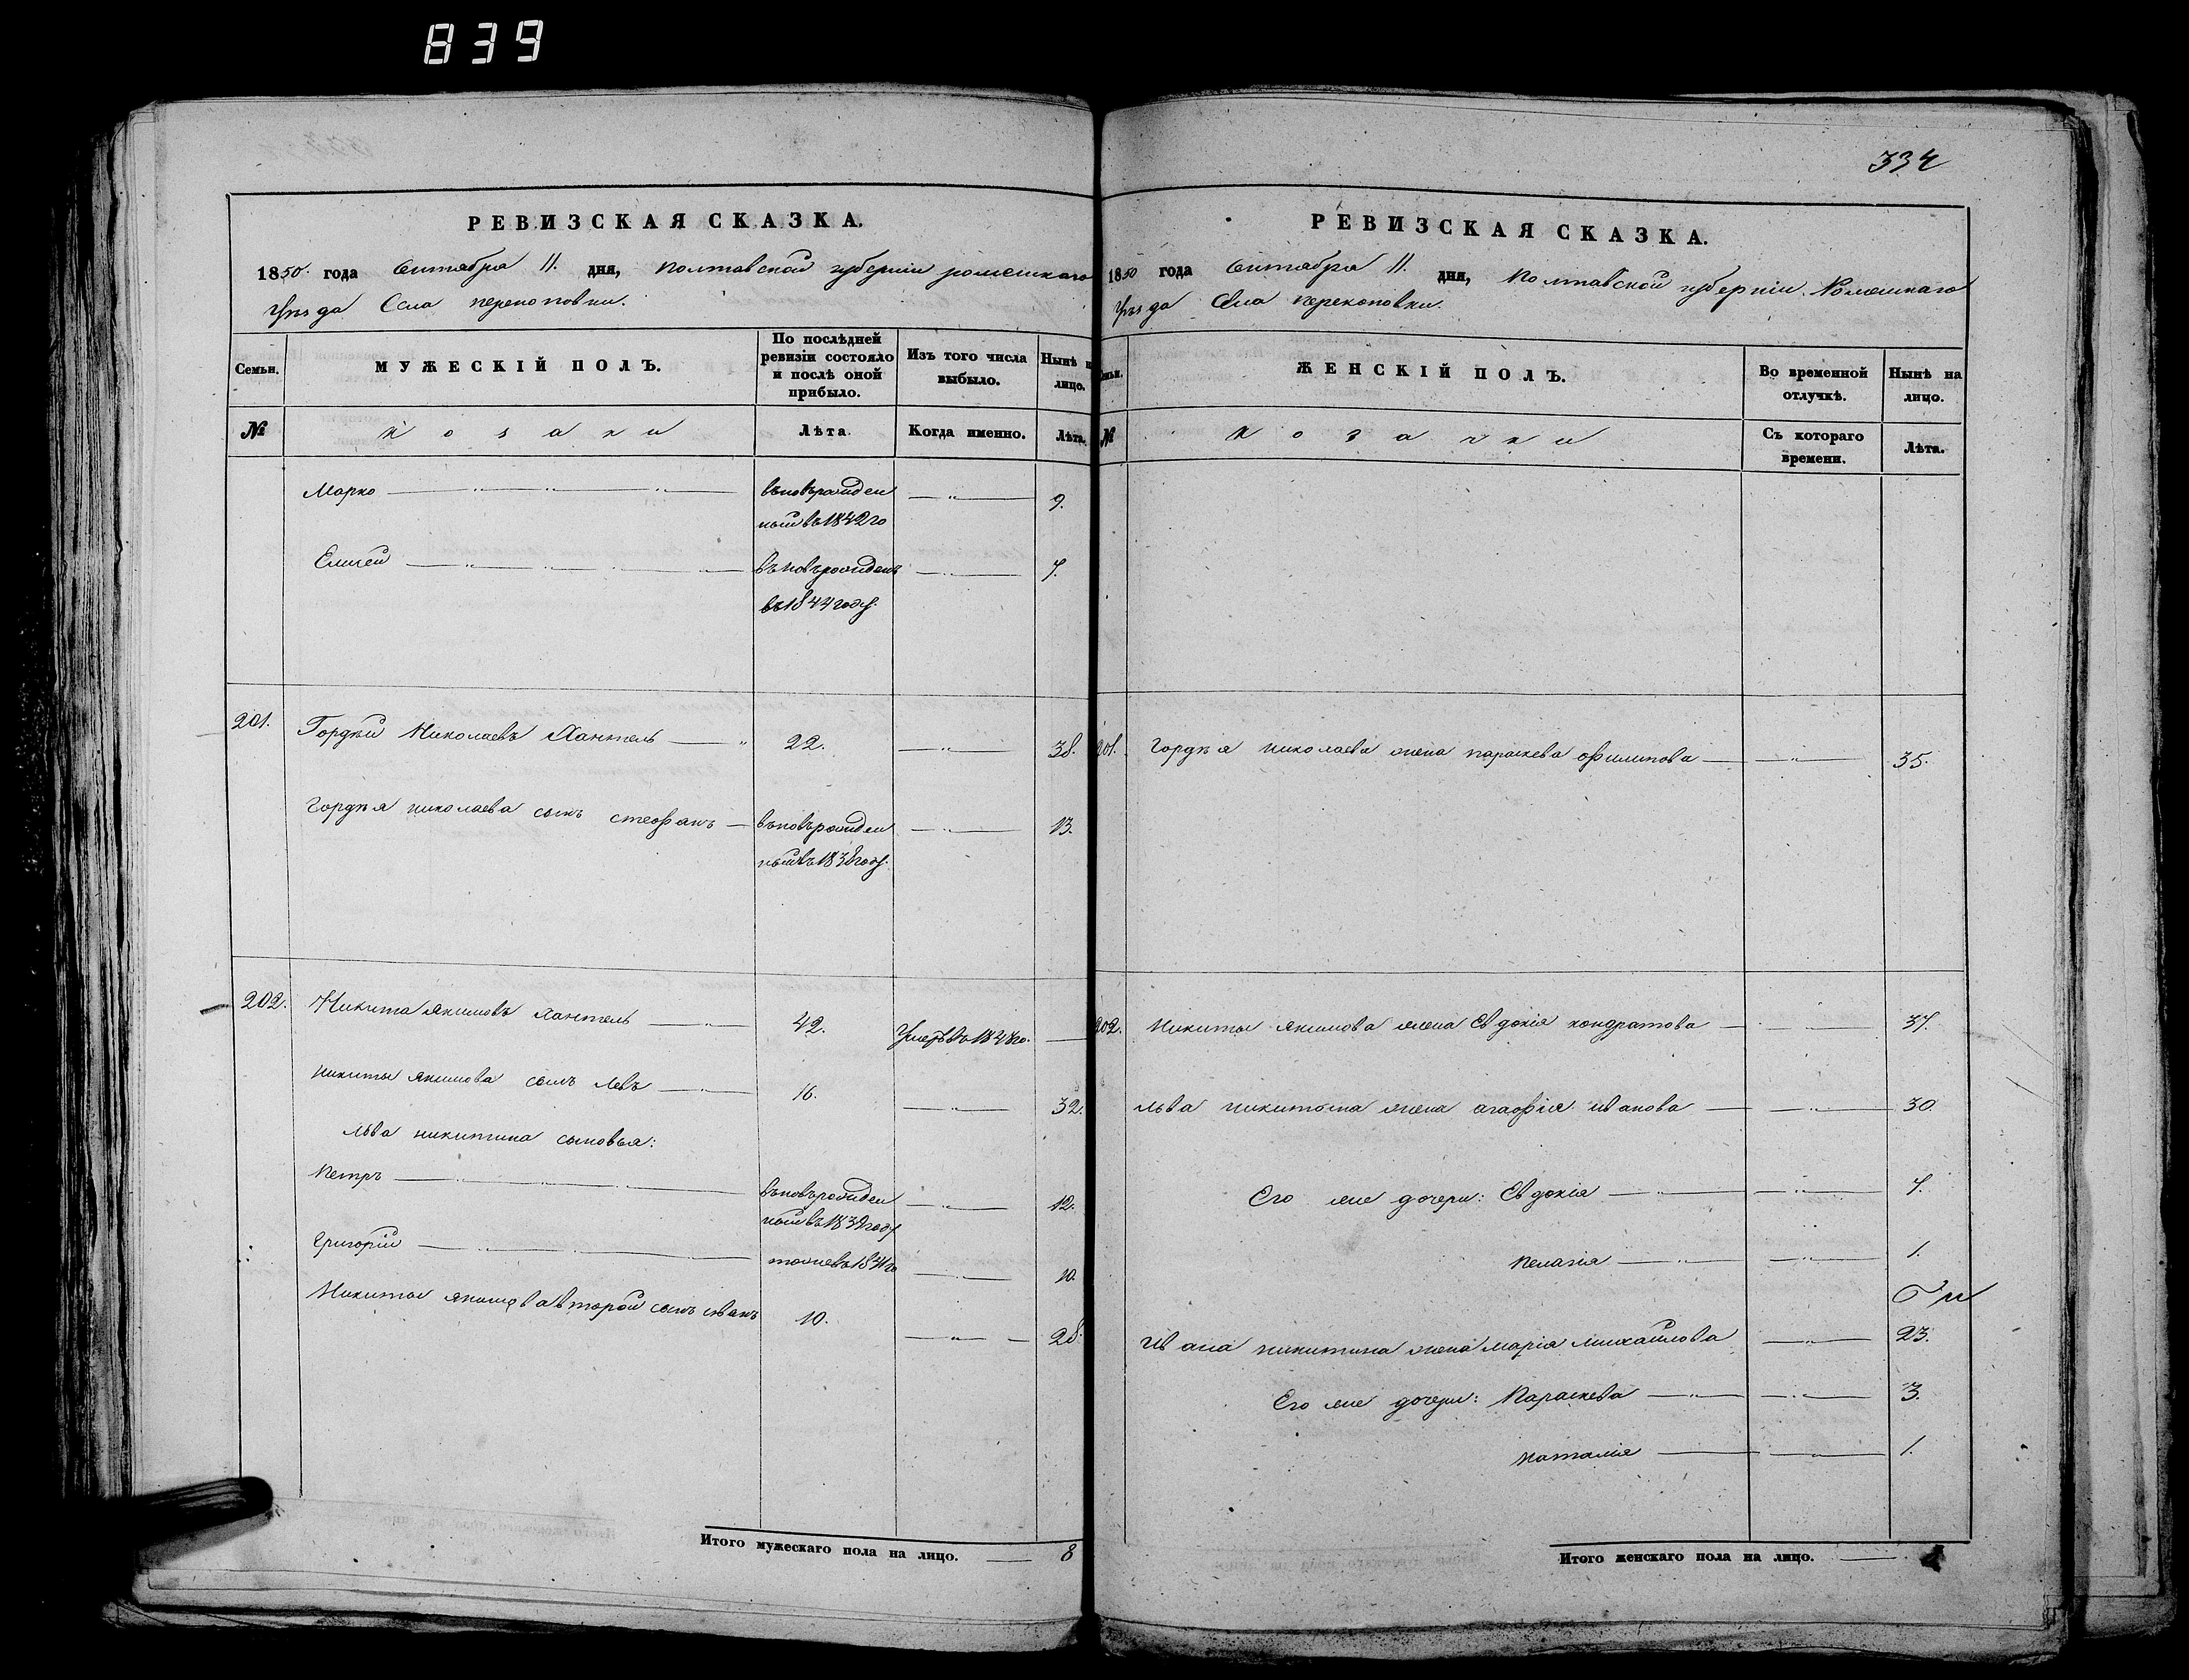 839
РЕВИЗСКАЯ СКАЗКА.
1850 года Октября 11. дня, Полтавской губерніи роменскаго
уѣзда Села перекоповки.
Семьи.
МУЖЕСКІЙ ПОЛЪ.
По послѣдней ревизіи состояло и послѣ оной прибыло.
Изъ того числа выбыло.
Нынѣ н лицо.
№
козаки
Лѣта
Когда именно.
Лѣта.
Марко — " — " — " —
вновьрожден — " — 9.
ный въ 1842 го
Елисей — " — " —
вновьрожденъ — " — 7.
въ 1844 году.
201. Гордѣй Николаевъ — " 22. — " — 38.
гордѣя николаева сынъ стефанъ — вновьрожден — " — 13.
ный въ 1838 году.
202. Никита якимовъ — " — 42. Умеръ въ 1848 го. —
никиты якимова сынъ левъ — " — 16. — " — 32.
льва никитина сыновья:
петръ — " — " — вновьрожден — " — 12.
ный въ 1839 году
григорій — " — " — тоже въ 1841 го — " — 10.
Никиты якимова второй сынъ иванъ 10. — " — 28.
Итого мужескаго пола на лицо. — 8
334
РЕВИЗСКАЯ СКАЗКА.
1850 года Октября 11. дня, Полтавской губерніи. Роменскаго
уѣзда Села перекоповки.
ЖЕНСКІЙ ПОЛЪ.
Во временной отлучкѣ.
Нынѣ на лицо.
№
козачки
Съ котораго времени.
Лѣта.
201. гордѣя николаева жена параскева филипова — " — 35.
202. никиты якимова жена Евдокія кондратова — 37.
льва никитина жена агафія иванова — " — 30.
Его же дочери: Евдокія — " — 7.
пелагія — " — 1.
ивана никитина жена марія михайлова — " — 23.
Его же дочери: Параскева — " — 3.
наталія — " — 1.
Итого женскаго пола на лицо. —